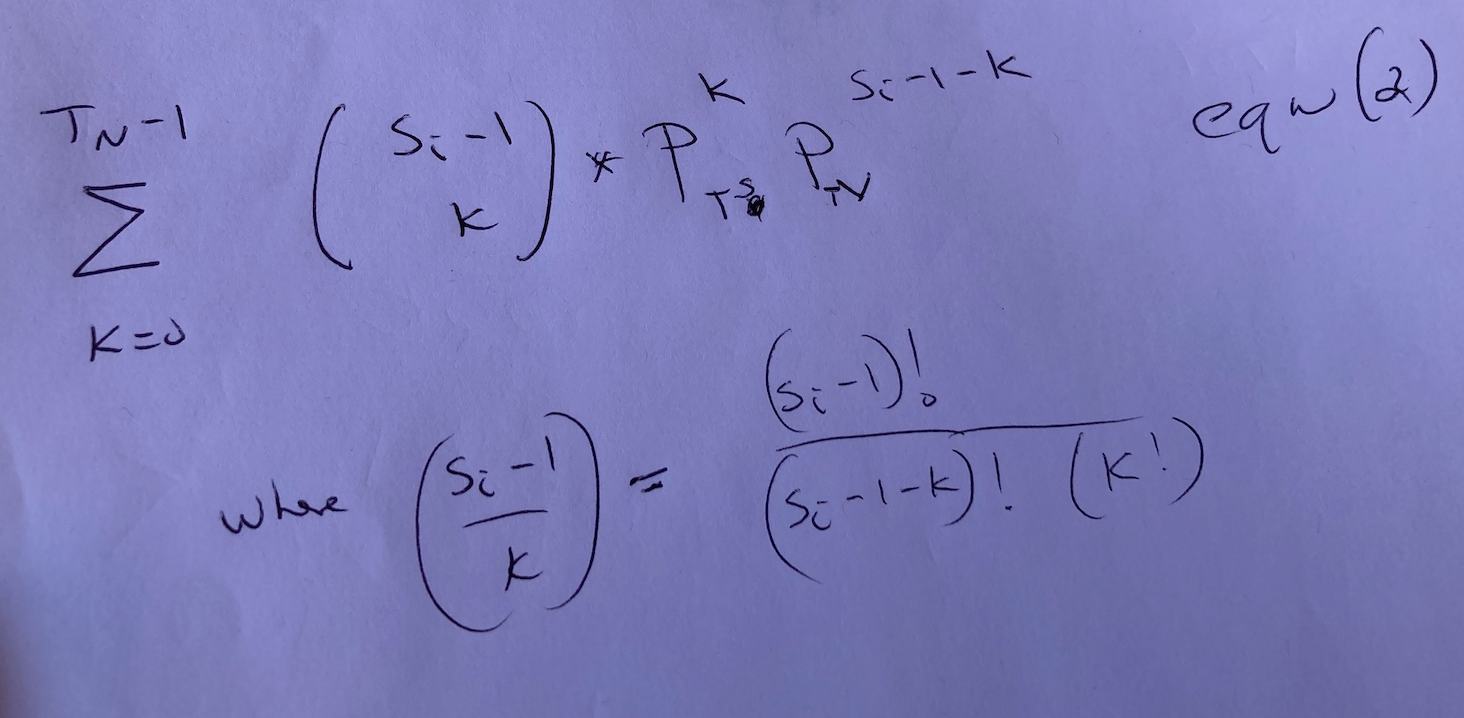 T_N-1
∑ (S_i-1 K) * P_TS^K P_TV^(S_i-1-K) eqn (2)
K=0
where (S_i-1 / K) = (S_i-1)! / (S_i-1-K)! (K!)